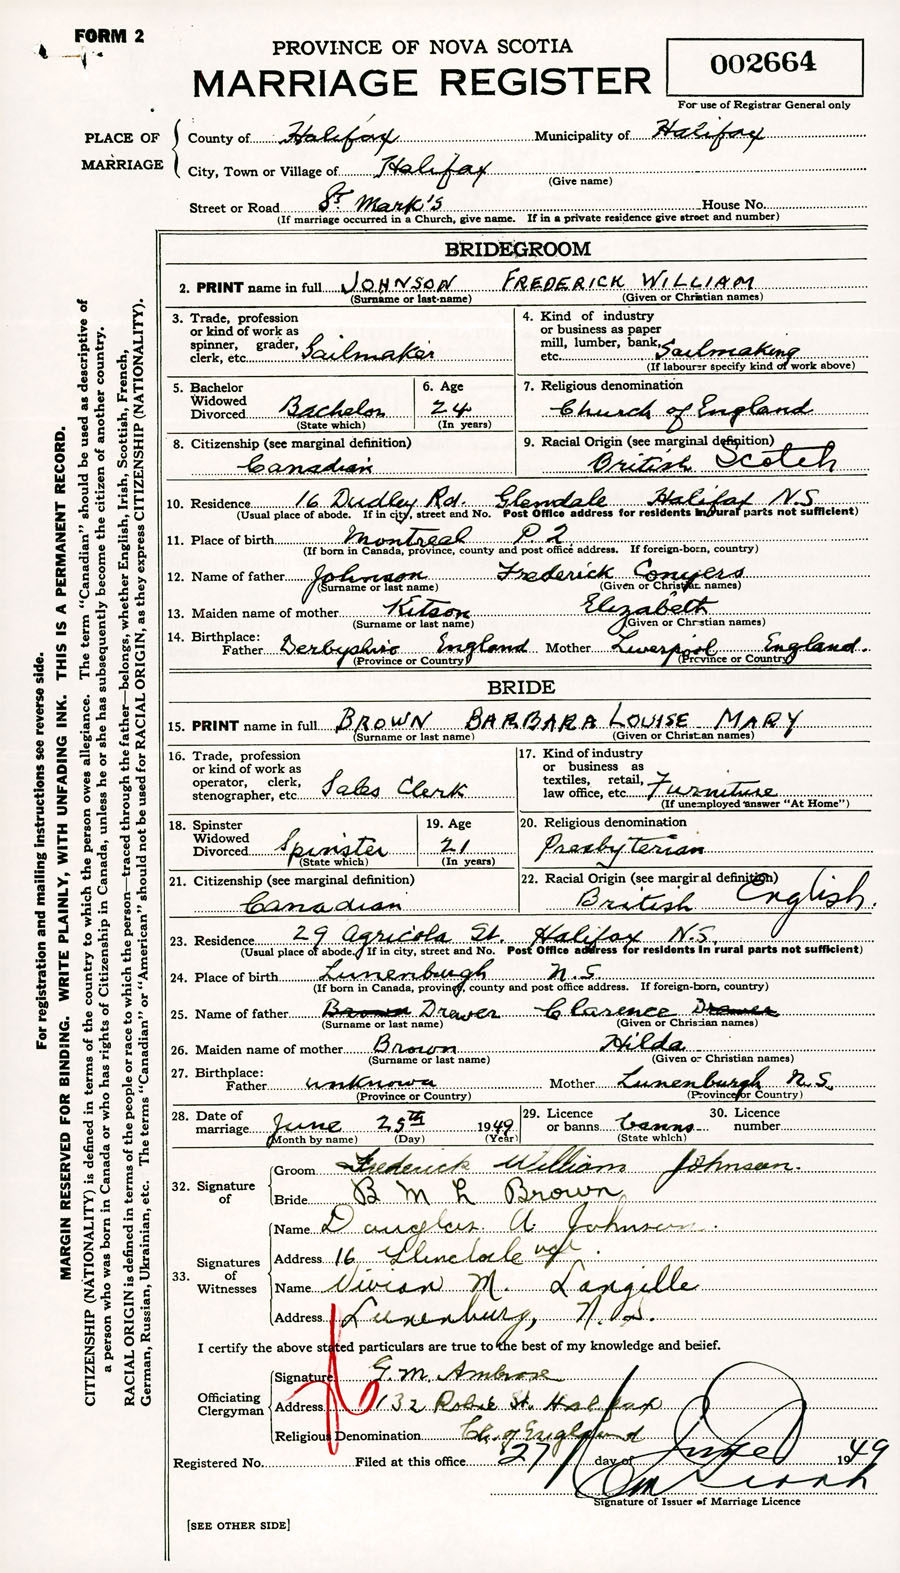 FORM 2
PROVINCE OF NOVA SCOTIA
MARRIAGE REGISTER
002664
For use of Registrar General only
PLACE OF MARRIAGE
County of Halifax Municipality of Halifax
City, Town or Village of Halifax
(Give name)
Street or Road St Mark's House No.
(If marriage occurred in a Church, give name. If in a private residence give street and number)
BRIDEGROOM
2. PRINT name in full JOHNSON FREDERICK WILLIAM
(Surname or last-name) (Given or Christian names)
3. Trade, profession or kind of work as spinner, grader, clerk, etc. Sailmaker
4. Kind of industry or business as paper mill, lumber, bank, etc. Sailmaking
(If labourer specify kind of work above)
5. Bachelor Widowed Divorced Bachelor
(State which)
6. Age 24
(In years)
7. Religious denomination
Church of England
8. Citizenship (see marginal definition)
Canadian
9. Racial Origin (see marginal definition)
British Scotch
10. Residence 16 Dudley Rd. Glendale Halifax N.S
(Usual place of abode. If in city, street and No. Post Office address for residents in rural parts not sufficient)
11. Place of birth Montreal P2
(If born in Canada, province, county and post office address. If foreign-born, country)
12. Name of father Johnson Frederick Conyers
(Surname or last name) (Given or Christian names)
13. Maiden name of mother Kitson Elizabeth
(Surname or last name) (Given or Christian names)
14. Birthplace: Father Derbyshire England Mother Liverpool England.
(Province or Country) (Province or Country)
BRIDE
15. PRINT name in full BROWN BARBARA LOUISE MARY
(Surname or last name) (Given or Christian names)
16. Trade, profession or kind of work as operator, clerk, stenographer, etc. Sales Clerk
17. Kind of industry or business as textiles, retail, law office, etc. Furniture
(If unemployed answer "At Home")
18. Spinster Widowed Divorced Spinster
(State which)
19. Age 21
(In years)
20. Religious denomination
Presbyterian
21. Citizenship (see marginal definition)
Canadian
22. Racial Origin (see marginal definition)
British English.
23. Residence 29 Agricola St. Halifax N.S.
(Usual place of abode. If in city, street and No. Post Office address for residents in rural parts not sufficient)
24. Place of birth Lunenburgh N.S.
(If born in Canada, province, county and post office address. If foreign-born, country)
25. Name of father Brown Drewer Clarence Drewer
(Surname or last name) (Given or Christian names)
26. Maiden name of mother Brown Hilda
(Surname or last name) (Given or Christian names)
27. Birthplace: Father unknown Mother Lunenburgh N.S.
(Province or Country) (Province or Country)
28. Date of marriage June 25th 1949
(Month by name) (Day) (Year)
29. Licence or banns banns
(State which)
30. Licence number
32. Signature of
Groom Frederick William Johnson.
Bride B M L Brown
33. Signatures of Witnesses
Name Douglas A Johnson.
Address 16
Name Vivian M. Langille
Address Lunenburg, N.S.
I certify the above stated particulars are true to the best of my knowledge and belief.
Officiating Clergyman
Signature G. M. Ambrose
Address 132 Robie St. Halifax
Religious Denomination Ch. of England
Registered No. Filed at this office 27 day of June 1949
Signature of Issuer of Marriage Licence
[SEE OTHER SIDE]
For registration and mailing instructions see reverse side.
MARGIN RESERVED FOR BINDING. WRITE PLAINLY, WITH UNFADING INK. THIS IS A PERMANENT RECORD.
CITIZENSHIP (NATIONALITY) is defined in terms of the country to which the person owes allegiance. The term "Canadian" should be used as descriptive of
a person who was born in Canada or who has rights of Citizenship in Canada, unless he or she has subsequently become the citizen of another country.
RACIAL ORIGIN is defined in terms of the people or race to which the person—traced through the father—belongs, whether English, Irish, Scottish, French,
German, Russian, Ukrainian, etc. The terms "Canadian" or "American" should not be used for RACIAL ORIGIN, as they express CITIZENSHIP (NATIONALITY).